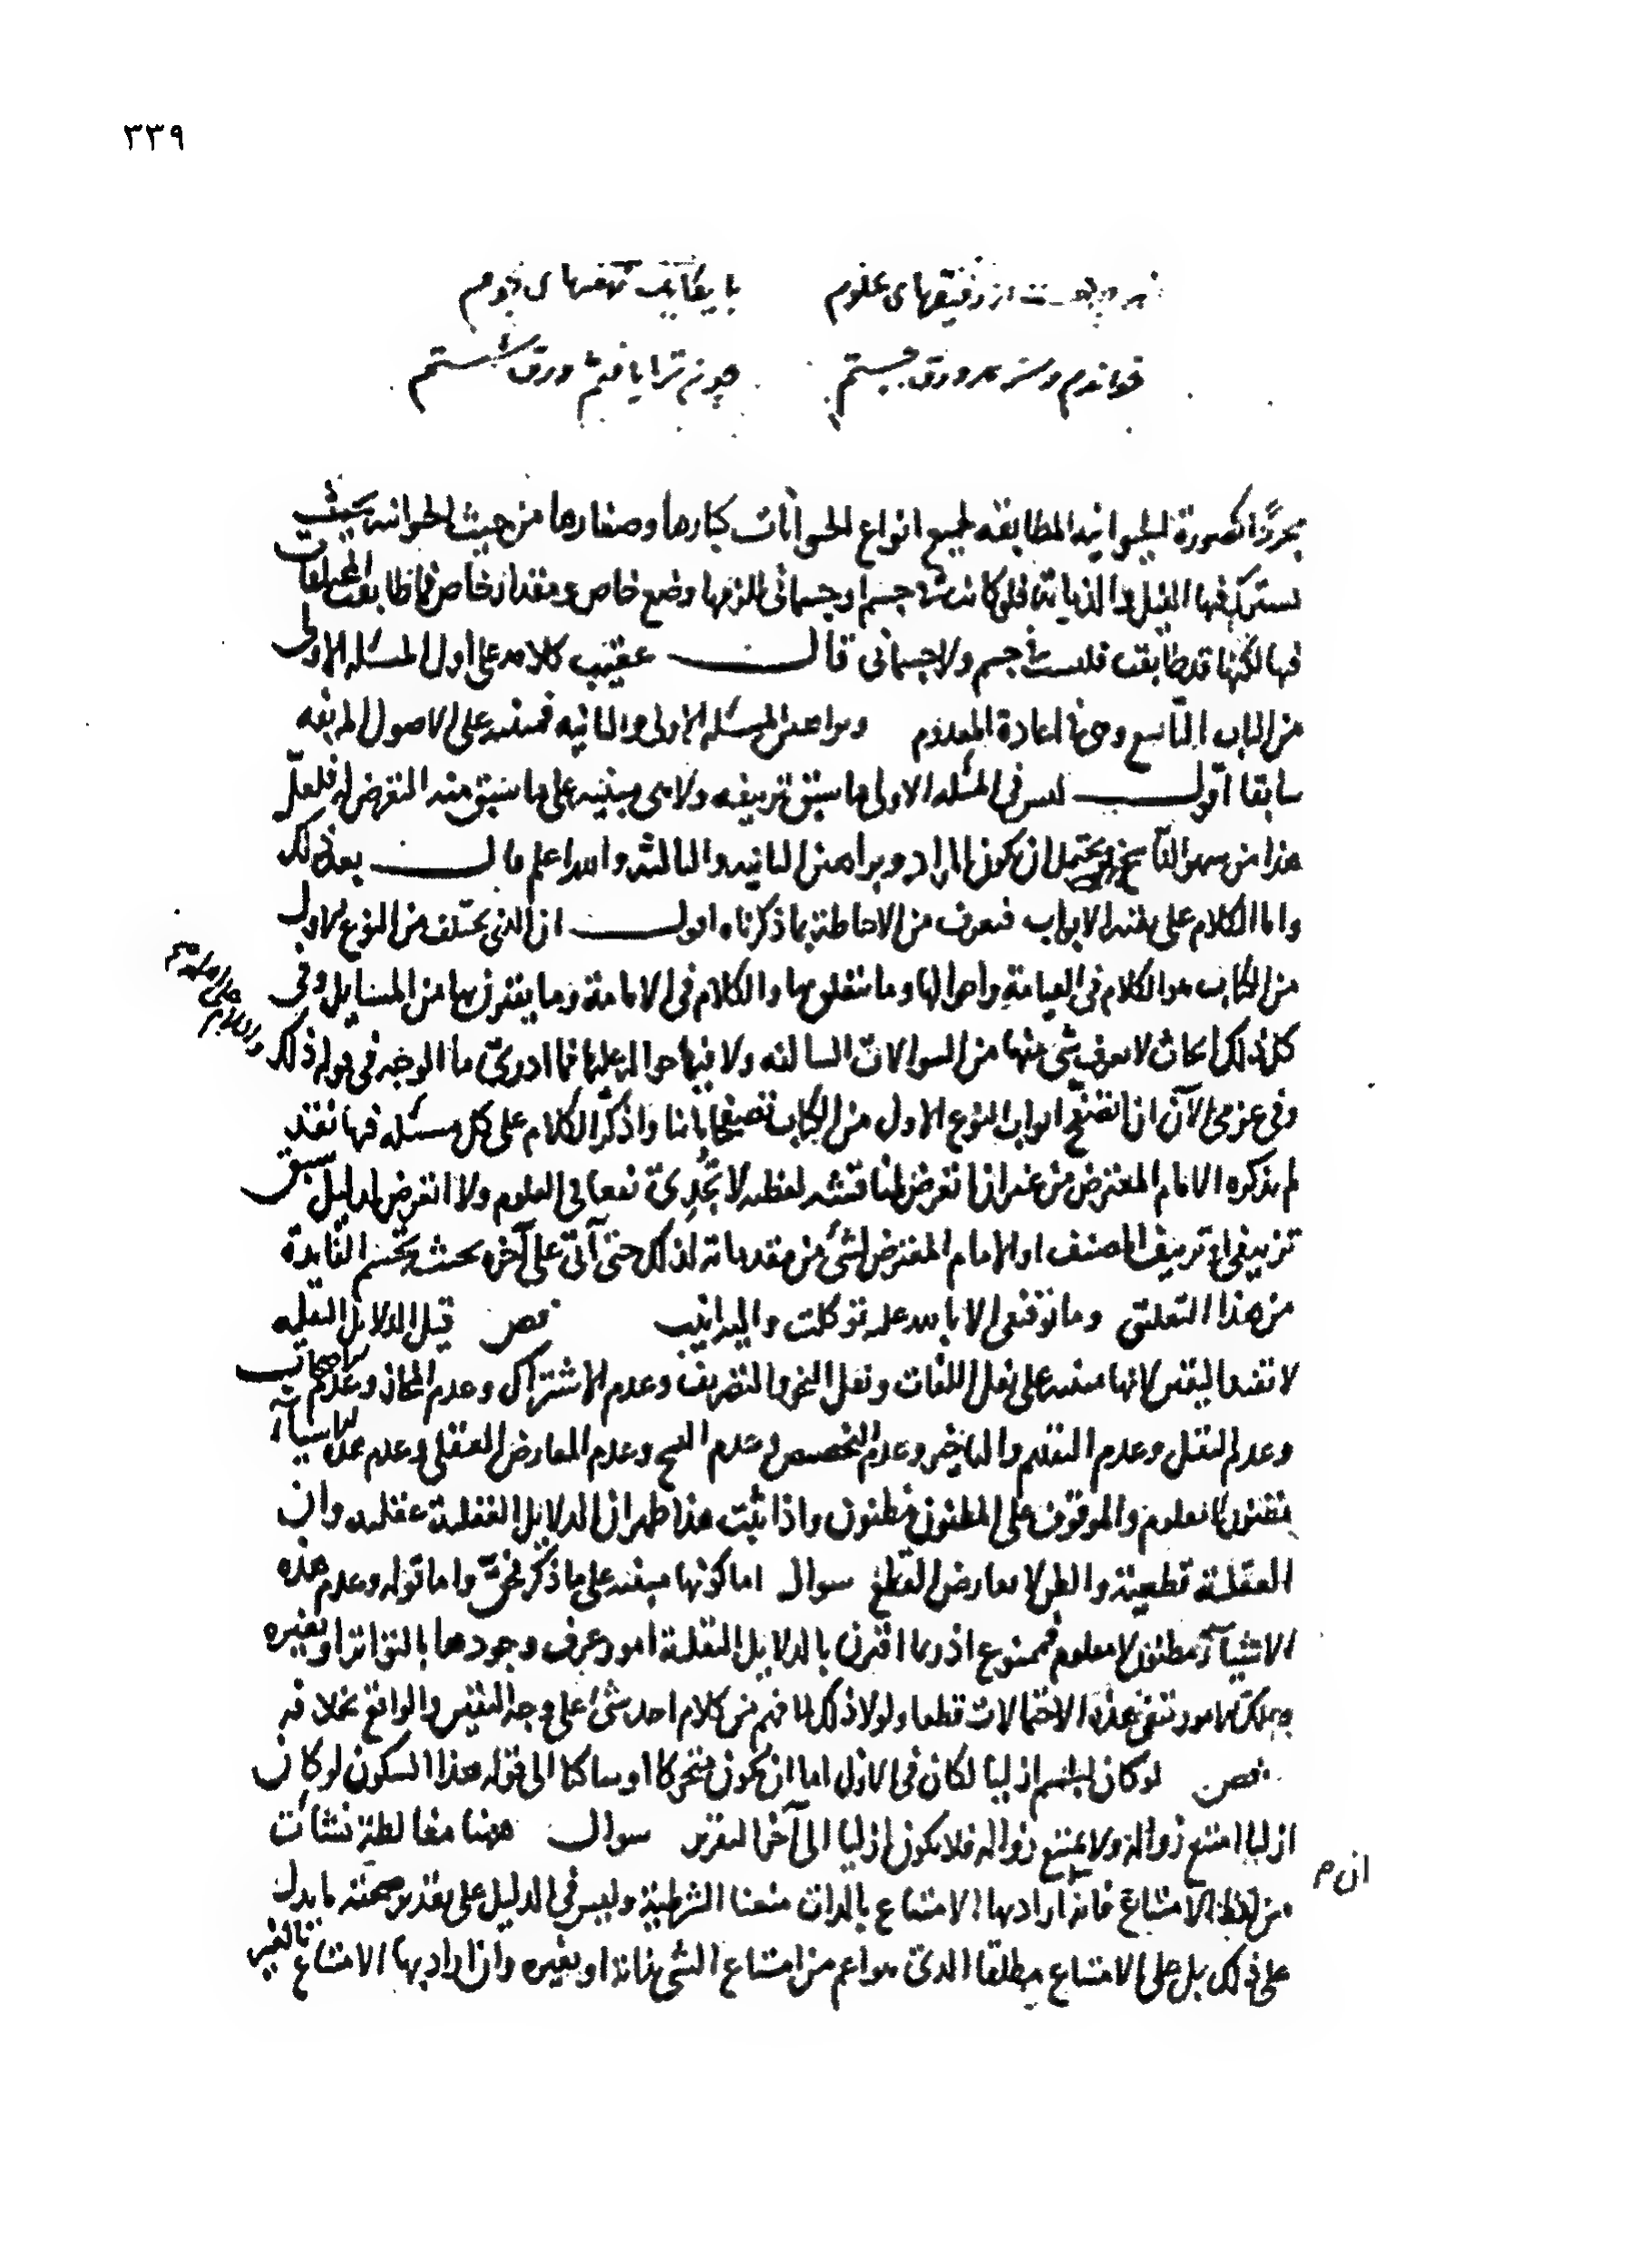 ٣٣٩
هر چه هست از دقیقهای علوم با یکایک نهفتهای نجوم
خواندم و سر هر ورق جستم چون ترا یافتم ورق شستم
مجردة كصورة الحيوانية المطابقه لجميع انواع الحيوانات كبارها وصغارها من حيث الحيوانيه بحيث
يشترك فيها الفيل والذبابة فلو كانت جسم او جسمانى للزمها وضع خاص ومقدار خاص فما طابقت المختلفات
فيها لكنها قد طابقت فليست جسم ولا جسمانى قال عقيب كلامه على اول المسئله الاولى
من الباب التاسع وهى اعادة المعدوم وبراهين المسئله الاولى والثانيه فمبنيه على الاصول المزيفه
سابقا اقول ليس فى المسئله الاولى ما سبق تزييفه ولا هى مبنيه على ما سبق منه التعرض له فلعل
هذا من سهو الناسخ ويحتمل ان يكون المراد وبراهين الثانيه والثالثه والله اعلم قال بعد ذلك
واما الكلام على بقية الابواب فتعرف من الاحاطة بما ذكرناه اقول ان الذى تخلف من النوع الاول
من الكتاب هو الكلام فى القيامة واحوالها وما يتعلق بها والكلام فى الامامة وما يقترن بها من المسايل وفى
كل ذلك ابحاث لا يعرف شى منها من السوالات السالفه ولا فيها حواله عليها فما ادرى ما الوجه فى قوله ذلك
وفى عزمى الآن ان اتصفح ابواب النوع الاول من الكتاب تصفحا باتا واذكر الكلام على كل مسئله فيها نقد
لم يذكره الامام المعترض من غير ان اتعرض لمناقشه لفظيه لا تجدى نفعا فى العلوم ولا اتعرض لدليل سبق
تزييفى او تزييف المصنف او الامام المعترض لشئ من مقدماته لذلك حتى آتى على آخره بحيث تحسن الفايدة
من هذا التعليق وما توفيقى الا بالله عليه توكلت واليه انيب فص قيل الدلايل النقليه
لا تفيد اليقين لانها مبنيه على نقل اللغات ونقل النحو والتصريف وعدم الاشتراك وعدم المجاز وعدم
وعدم النقل وعدم التقديم والتاخير وعدم التخصيص وعدم النسخ وعدم المعارض العقلى وعدم هذه الاشياء
مظنون لا معلوم والموقوف على المظنون مظنون واذا ثبت هذا ظهر ان الدلايل النقلية ظنيه وان
العقلية قطعية والظن لا يعارض القطع سوال اما كونها مبنيه على ما ذكر فحق واما قوله وعدم هذه
الاشياء مظنون لا معلوم فممنوع اذ ربما اقترن بالدلايل النقلية امور عرف وجودها بالتواتر او بغيره
وبتلك الامور تنتفى هذه الاحتمالات قطعا ولولا ذلك لما فهم من كلام احد شئ على وجه اليقين والواقع بخلافه
فص لو كان الجسم ازليا لكان فى الازل اما ان يكون متحركا او ساكنا الى قوله هذا السكون لو كان
ازليا امتنع زواله ولا يمتنع زواله فلا يكون ازليا الى آخر التقرير سوال ههنا مغالطة نشات
من لفظ الامتناع فانه اراد بها الامتناع بالذات منعنا الشرطية وليس فى الدليل على تقدير صحته ما يدل
ان م
على ذلك بل على الامتناع مطلقا الذى هو اعم من امتناع الشى بذاته او بغيره وان اراد بها الامتناع بالغير